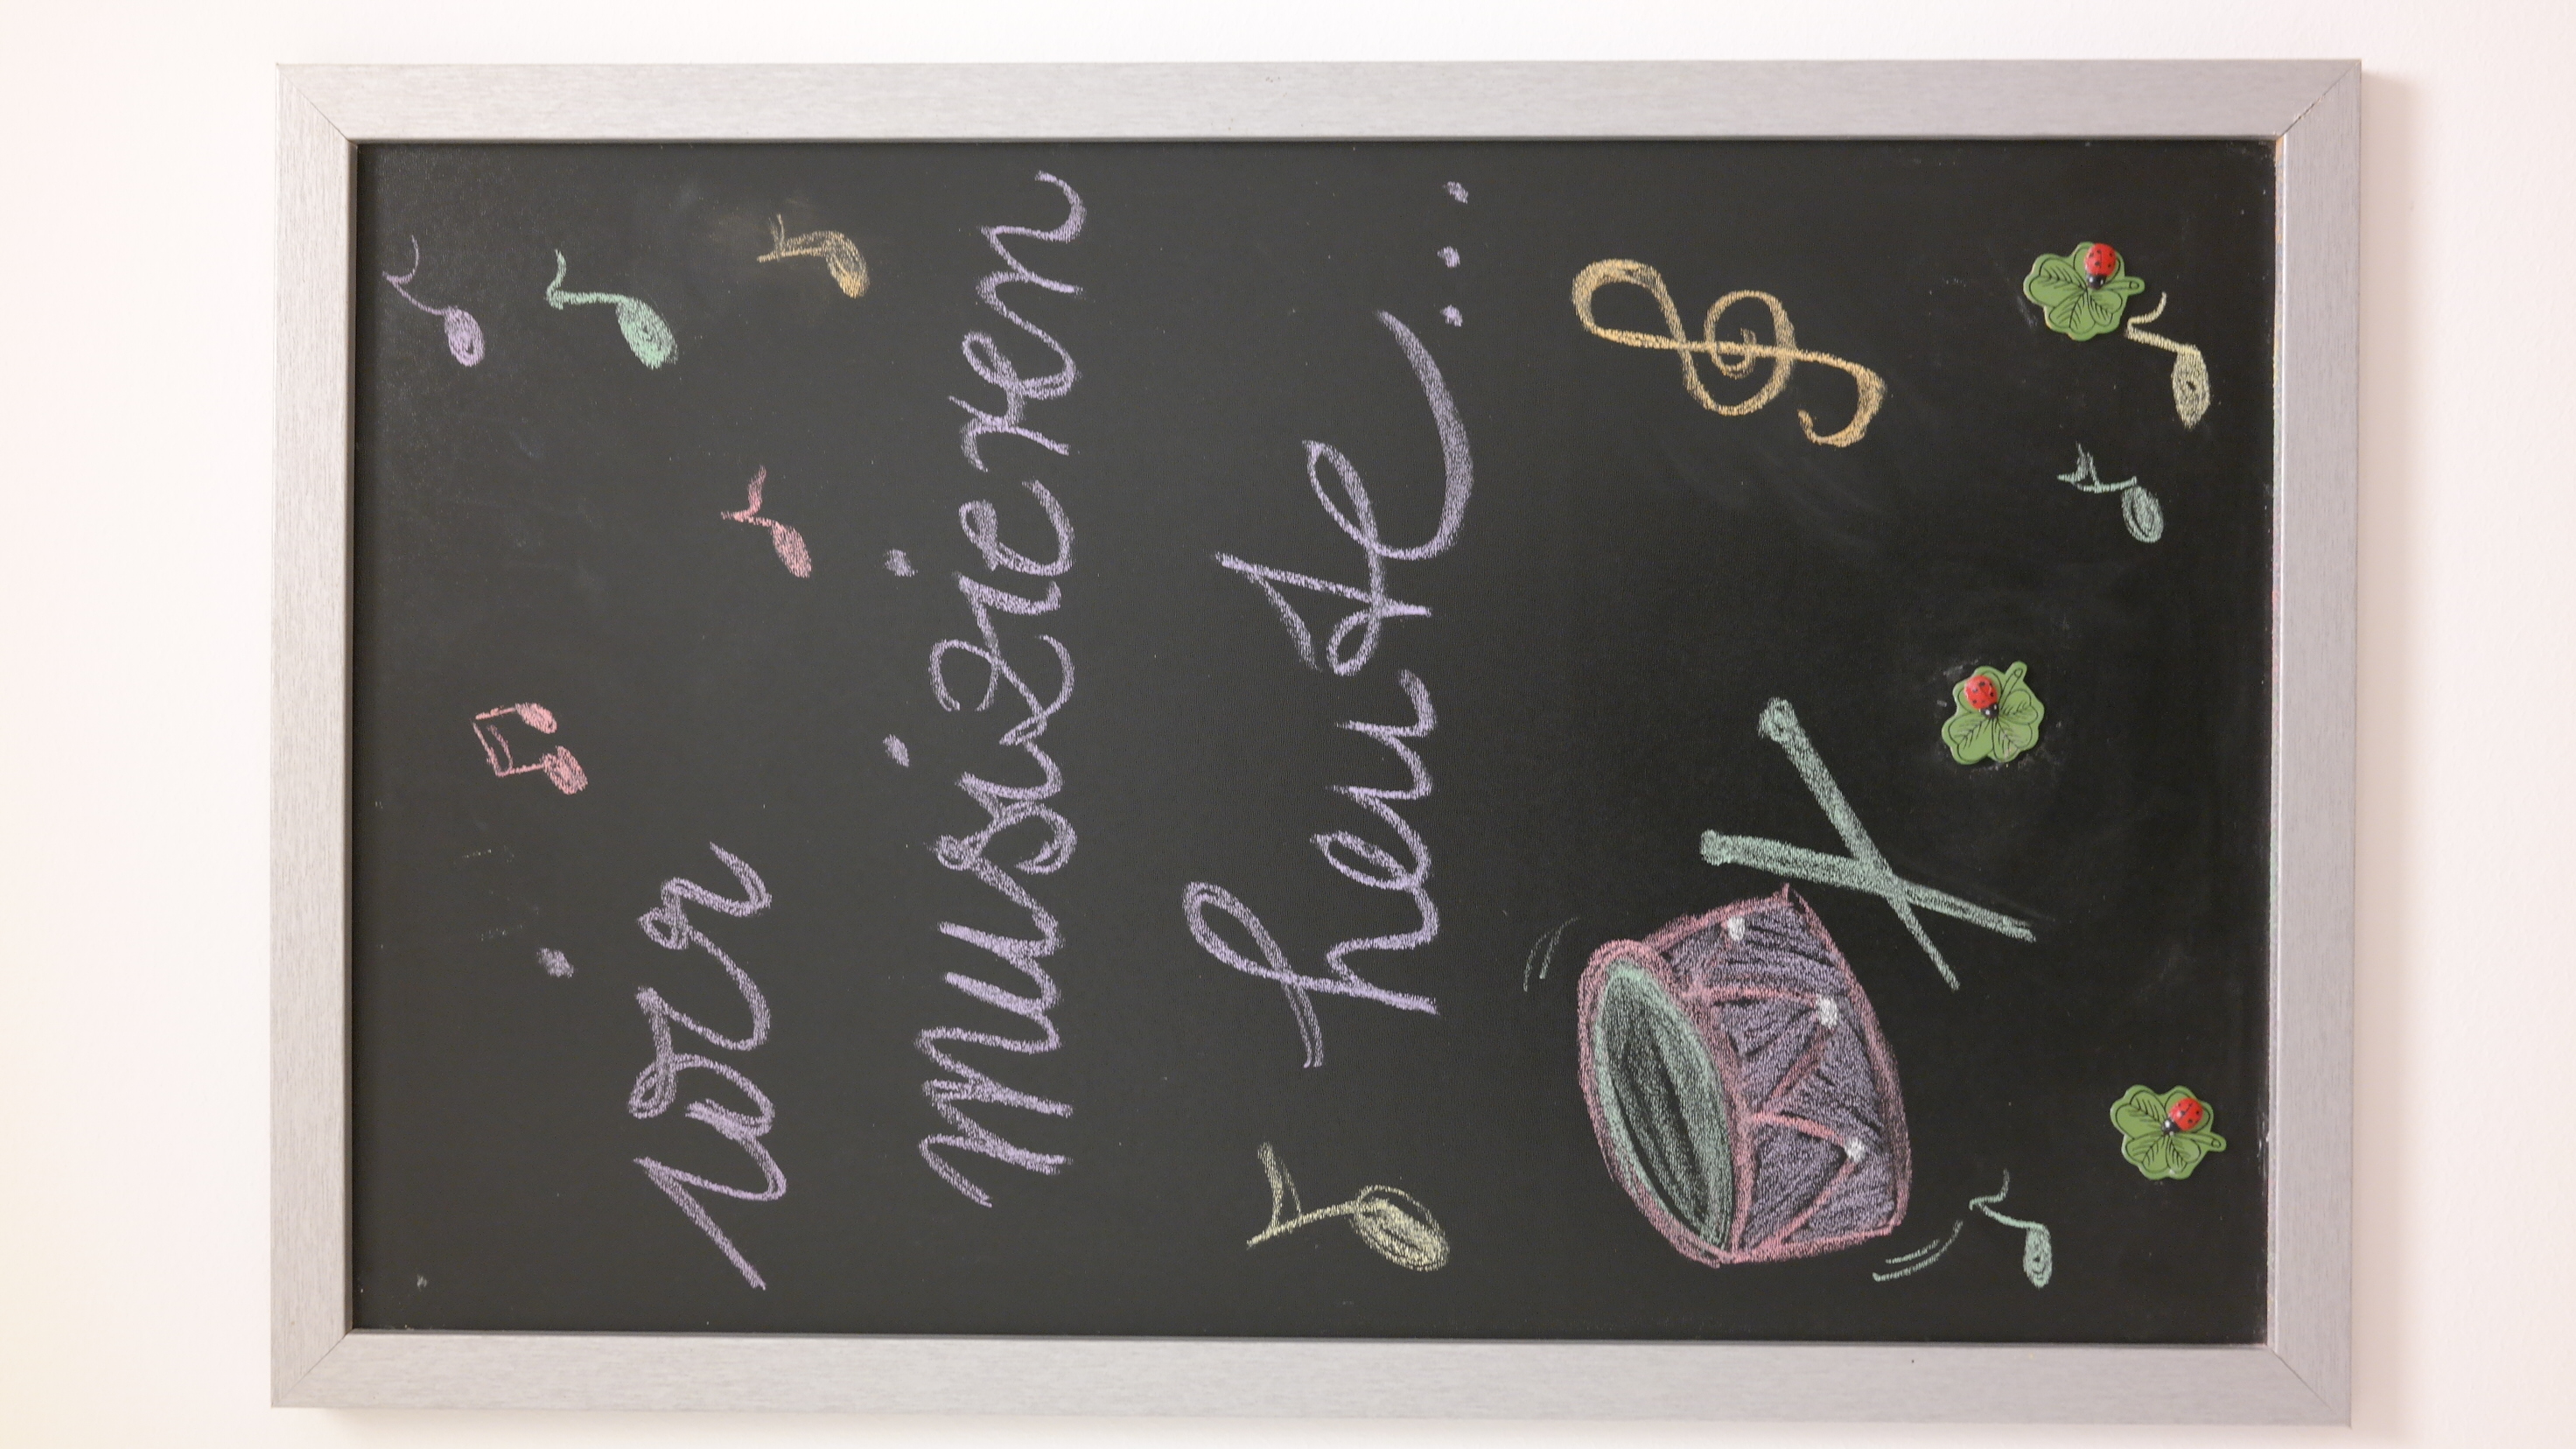 wir
musizieren
heute...